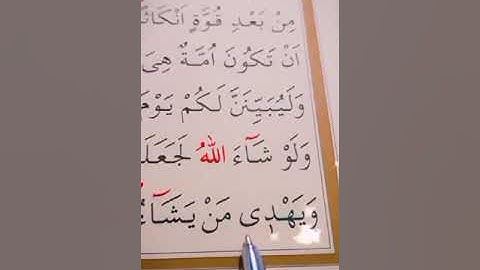 مِنْ بَعْدِ قُوَّةٍ اَنْكَاثًا
اَنْ تَكُونَ اُمَّةٌ هِىَ
وَلَيُبَيِّنَنَّ لَكُمْ يَوْمَ
وَلَوْ شَٓاءَ اللّٰهُ لَجَعَلَ
وَيَهْدٖى مَنْ يَشَٓاءُ